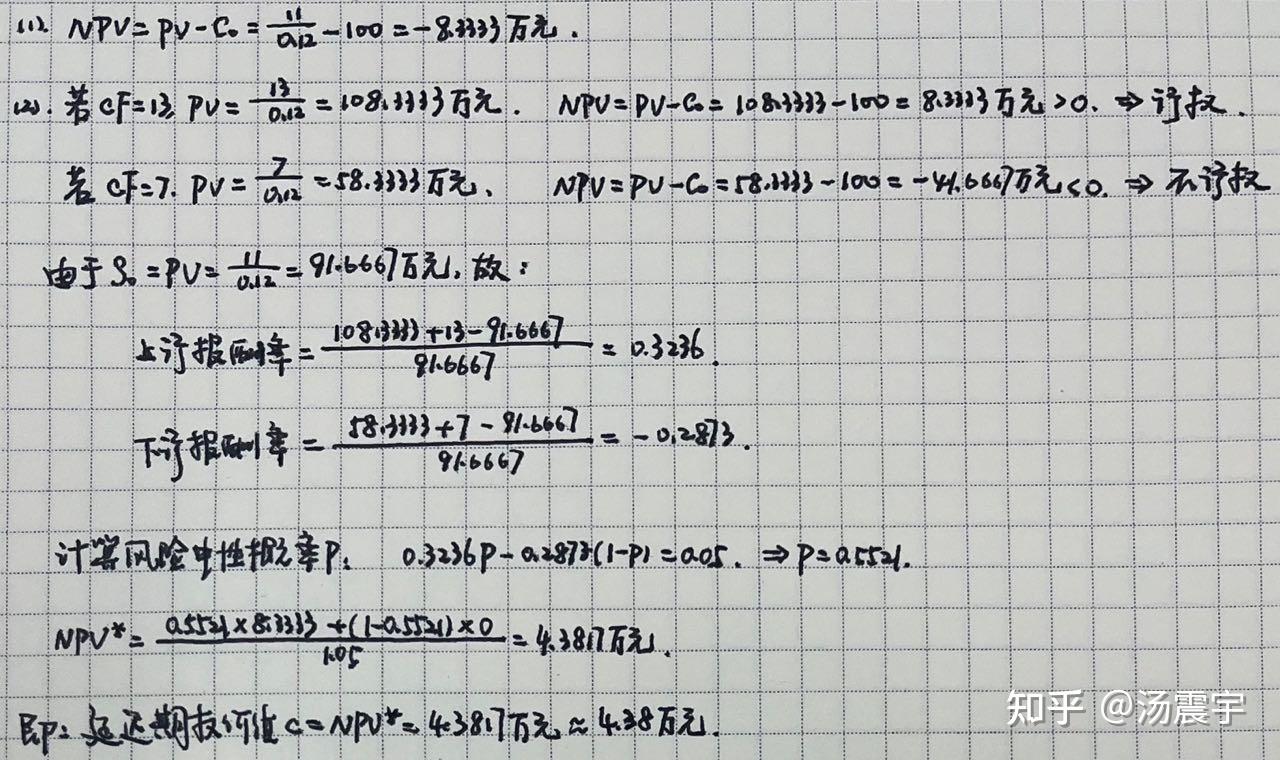 (1) NPV = PV - C₀ = 11/0.12 - 100 = -8.3333万元.
(2). 若CF=13, PV = 13/0.12 = 108.3333万元. NPV = PV - C₀ = 108.3333 - 100 = 8.3333万元 > 0. ⇒ 行权.
若CF=7. PV = 7/0.12 = 58.3333万元. NPV = PV - C₀ = 58.3333 - 100 = -41.6667万元 < 0. ⇒ 不行权
由于 S₀ = PV = 11/0.12 = 91.6667万元, 故:
上行报酬率 = (108.3333 + 13 - 91.6667)/91.6667 = 0.3236.
下行报酬率 = (58.3333 + 7 - 91.6667)/91.6667 = -0.2873.
计算风险中性概率P: 0.3236P - 0.2873(1-P) = 0.05. ⇒ P = 0.5521.
NPV* = (0.5521 × 8.3333 + (1-0.5521) × 0)/1.05 = 4.3817万元.
即: 延迟期权价值 C = NPV* = 4.3817万元 ≈ 4.38万元.
知乎 @汤震宇